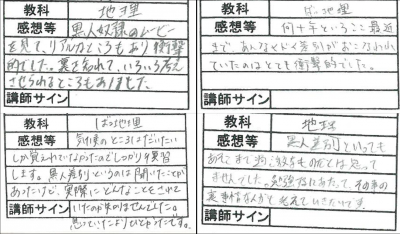 教科 地理
感想等 黒人奴隷のムービー
を見て、リアルなところもあり衝撃
的でした。裏を知れて、いろいろ考え
させられるところもありました。
講師サイン
教科 地理
感想等 何十年というここ最近
まで、あんなひどい差別がおこなわれ
ていたのはとても衝撃的でした。
講師サイン
教科 地理
感想等 気候のところはだいたい
しか覚えれていなかったのでしっかり復習
します。黒人差別というのは聞いたことが
あったけど、実際にどんなことをされて
講師サイン いたのか知りませんでした。
思っていたよりひどかったです。
教科 地理
感想等 黒人差別といっても
あそこまで
ませんでした。勉強するにあたって、その年の
考えていきたいです。
講師サイン